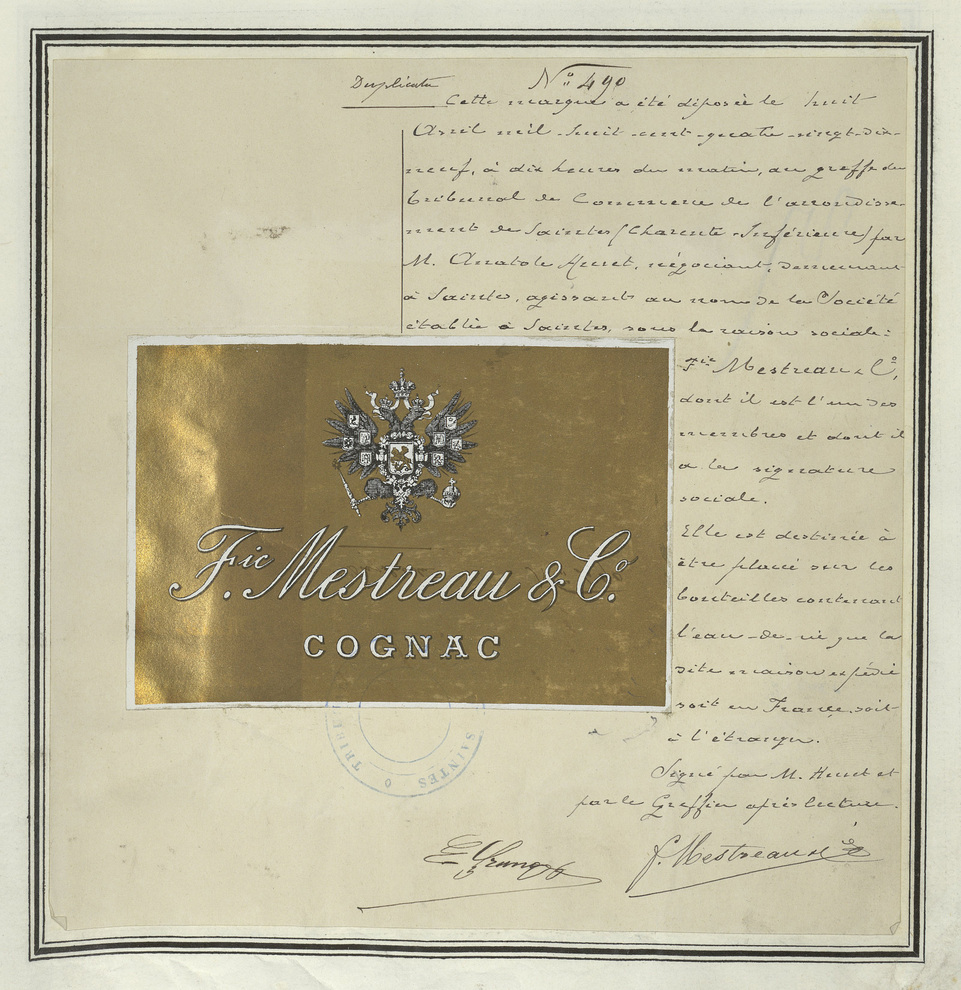 Duplicata
N° 490
Cette marque a été déposée le huit
Avril mil-huit-cent-quatre-vingt-dix-
neuf, à dix heures du matin, au greffe du
Tribunal de Commerce de l'arrondisse-
ment de Saintes (Charente-Inférieure) par
M. Anatole Huret, négociant, demeurant
à Saintes, agissant au nom de la Société
établie à Saintes, sous la raison sociale:
Fic Mestreau & Co,
dont il est l'un des
membres et dont il
a la signature
sociale.
Elle est destinée à
être placée sur les
bouteilles contenant
l'eau-de-vie que la
dite maison expédie
soit en France, soit
à l'étranger.
Signé par M. Huret et
par le Greffier après lecture.
F. Mestreau & Co
Fic Mestreau & Co.
COGNAC
SAINTES